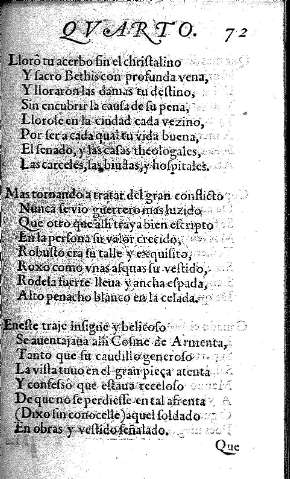 QVARTO. 72
Lloró tu acerbo fin el christalino
Y sacro Bethis con profunda vena,
Y lloraron las damas tu destino,
Sin encubrir la causa de su pena,
Llorose en la ciudad cada vezino,
Por ser a cada qual tu vida buena,
El senado, y las casas theologales,
Las carceles, las biudas, y hospitales.
Mas tornando a tratar del gran conflicto
Nunca se vio guerrero mas luzido
Que otro que alli traya bien escripto
En la persona su valor crecido,
Robusto era su talle y exquisito,
Roxo como vnas asquas su vestido,
Rodela fuerte lleua y ancha espada,
Alto penacho blanco en la celada.
En este traje insigne y belicoso
Se auentajaua alli Cosme de Armenta,
Tanto que su caudillo generoso
La vista tuuo en el gran pieça atenta
Y confesso que estaua receloso
De que no se perdiesse en tal afrenta
(Dixo sin conocelle) aquel soldado
En obras y vestido señalado.
Que